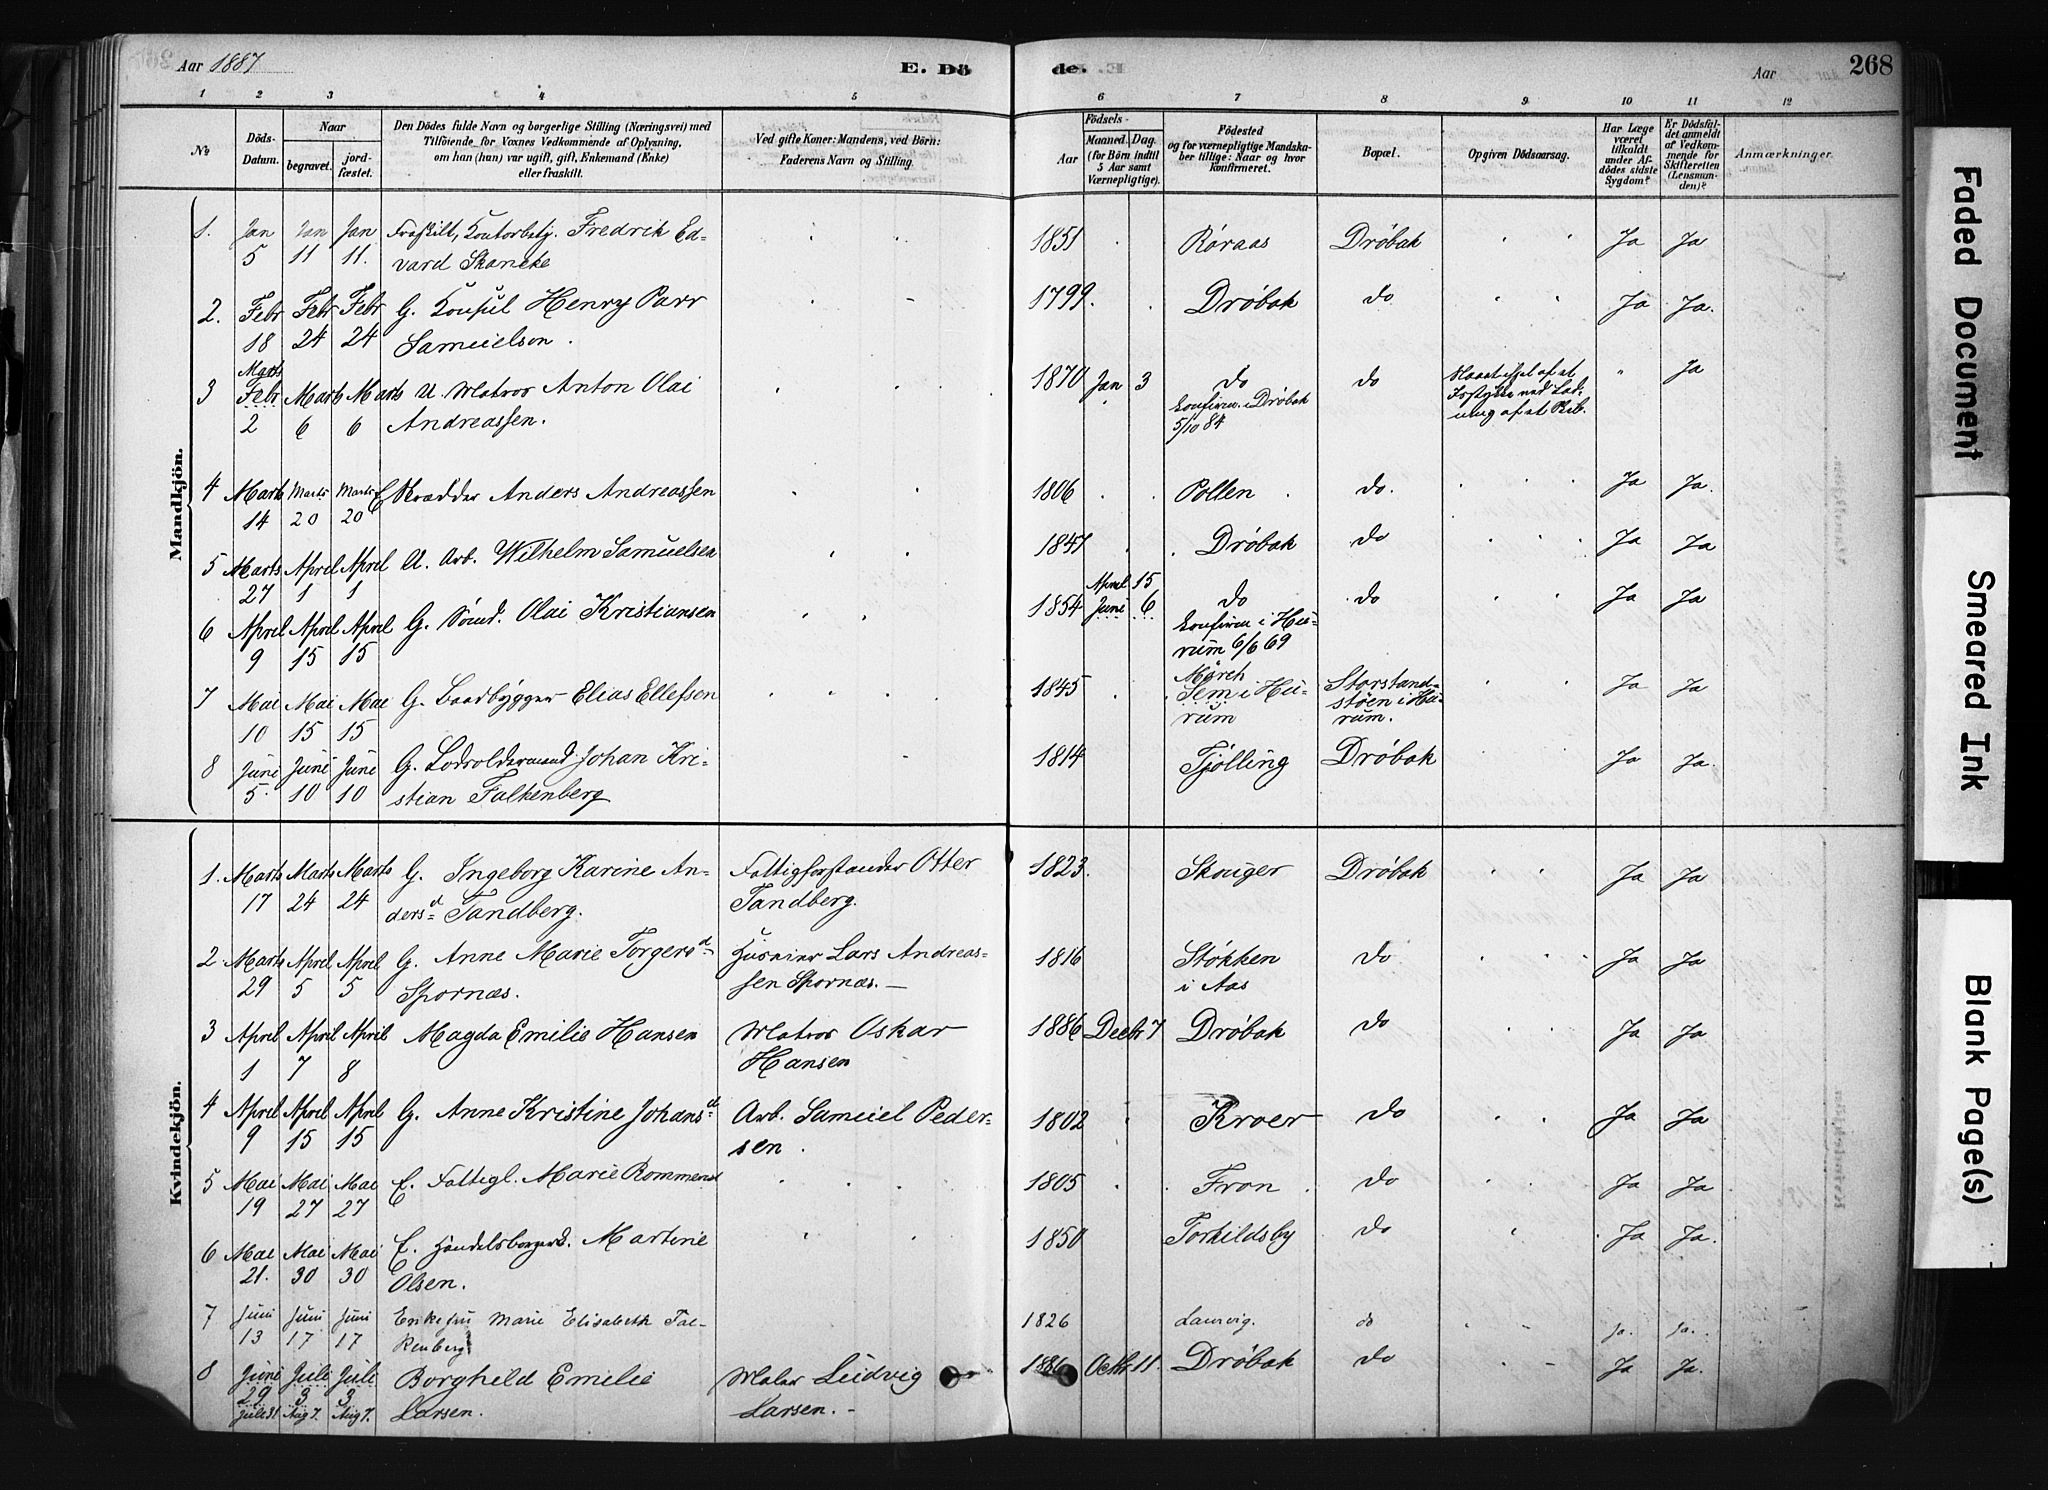 Aar 1887
E. Dö
de.
Aar
268
1 2 3 4 5 6 7 8 9 10 11 12
No
Döds-Datum.
Naar
begravet.
jord-fæstet.
Den Dödes fulde Navn og borgerlige Stilling (Næringsvei) med
Tilföiende for Voxnes Vedkommende af Oplysning,
om han (hun) var ugift, gift, Enkemand (Enke)
eller fraskilt.
Ved gifte Koner: Mandens, ved Börn:
Faderens Navn og Stilling.
Födsels-
Aar
Maaned. Dag.
(for Börn indtil
5 Aar samt
Værnepligtige).
Födested
og for værnepligtige Mandska-
ber tillige: Naar og hvor
konfirmeret.
Bopæl.
Opgiven Dödsaarsag.
Har Læge
været
tilkaldt
under Af-
dödes sidste
Sygdom?
Er Dödsfal-
det anmeldt
af Vedkom-
mende for
Skifteretten
(Lensman-
den)?
Anmærkninger.
Mandkjön.
1. Jan Jan Jan Fraskilt, Kontorbetj. Fredrik Ed- 1851 Røraas Drøbak Ja Ja
5 11 11. vard Skancke
2. Febr Febr Febr G. Konsul Henry Parr 1799. Drøbak do Ja Ja.
18 24 24 Samuelson.
Marts
3 Febr Marts Marts U. Matros Anton Olai 1870 Jan 3 do do " Ja
2 6 6 Andreassen. konfirm. i Drøbak
5/10 84
4 Marts Marts Marts E Skrædder Anders Andreassen 1806 Pollen do. Ja Ja.
14 20 20
5 Marts April April U. Arb. Wilhelm Samuelsen 1847 Drøbak do Ja Ja
27 1 1
April 15
6 April April April G. Sømd. Olai Kristiansen 1854 Juni 6 do do Ja Ja
9 15 15 konfirm i Hu-
rum 6/6 69
Mørch
7 Mai Mai Mai G. Baadbygger Elias Ellefsen 1845 Sem i Hu- Storsand- Ja Ja
10 15 15 rum støen i Hu-
rum.
8 Juni Juni Juni G. Lodsoldermand Johan Kri- 1814 Tjølling Drøbak Ja Ja.
5. 10 10 stian Falkenberg
Kvindekjön.
1. Marts Marts Marts G. Ingeborg Karine An- Fattigforstander Otter 1823. Skouger Drøbak Ja Ja
17 24 24 dersd Tandberg. Tandberg.
2. Marts April April G. Anne Marie Torgersd Huseier Lars Andreas- 1816 Støkken do Ja Ja
29 5 5 Spornæs. sen Spornæs. i Aas
3 April April April Magda Emilie Hansen Matros Oskar 1886 Decbr 7 Drøbak do Ja Ja
1 7 8 Hansen
4 April April April G. Anne Kristine Johansd Arb. Samuel Peder- 1802 Kroer do Ja Ja
9 15 15 sen.
5 Mai Mai Mai E. Fattigl. Marie Rommend 1805 Fron do Ja Ja
19 27 27
6 Mai Mai Mai E. Handelsborgersk. Martine 1850 Torkildsby do Ja Ja.
21. 30 30 Olsen.
7 Juni Juni Juni Enkefru Marie Elisabeth Fal- 1826 Laurvig. do Ja. Ja.
13 17 17 kenberg
8 Juni Juli Juli Borghild Emilie Maler Ludvig 1886 Octbr 11. Drøbak do Ja Ja.
29 3 3 Larsen. Larsen.
Juli 31 Aug 7. Aug 7.
Faded Document
Smeared Ink
Blank Page(s)